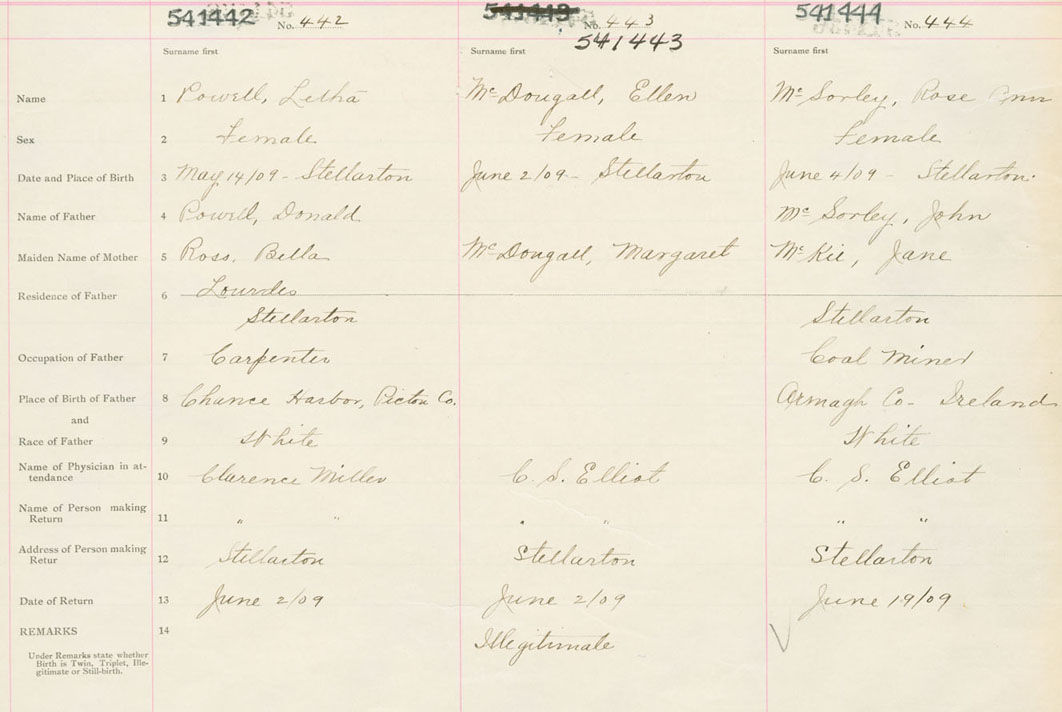 541442 No. 442 541443 No. 443 541444 No. 444
541443
Surname first Surname first Surname first
Name 1 Powell, Letha McDougall, Ellen McSorley, Rose Ann
Sex 2 Female Female Female
Date and Place of Birth 3 May 14/09 - Stellarton June 2/09 - Stellarton June 4/09 - Stellarton.
Name of Father 4 Powell, Donald McSorley, John
Maiden Name of Mother 5 Ross, Bella McDougall, Margaret McKie, Jane
Residence of Father 6 Lourdes
Stellarton Stellarton
Occupation of Father 7 Carpenter Coal Miner
Place of Birth of Father 8 Chance Harbor, Pictou Co. Armagh Co - Ireland
and
Race of Father 9 White White
Name of Physician in at-
tendance 10 Clarence Miller C. S. Elliot C. S. Elliot
Name of Person making
Return 11 " " " " " "
Address of Person making
Retur 12 Stellarton Stellarton Stellarton
Date of Return 13 June 2/09 June 2/09 June 19/09
REMARKS 14 Illegitimate
Under Remarks state whether
Birth is Twin, Triplet, Ille-
gitimate or Still-birth.